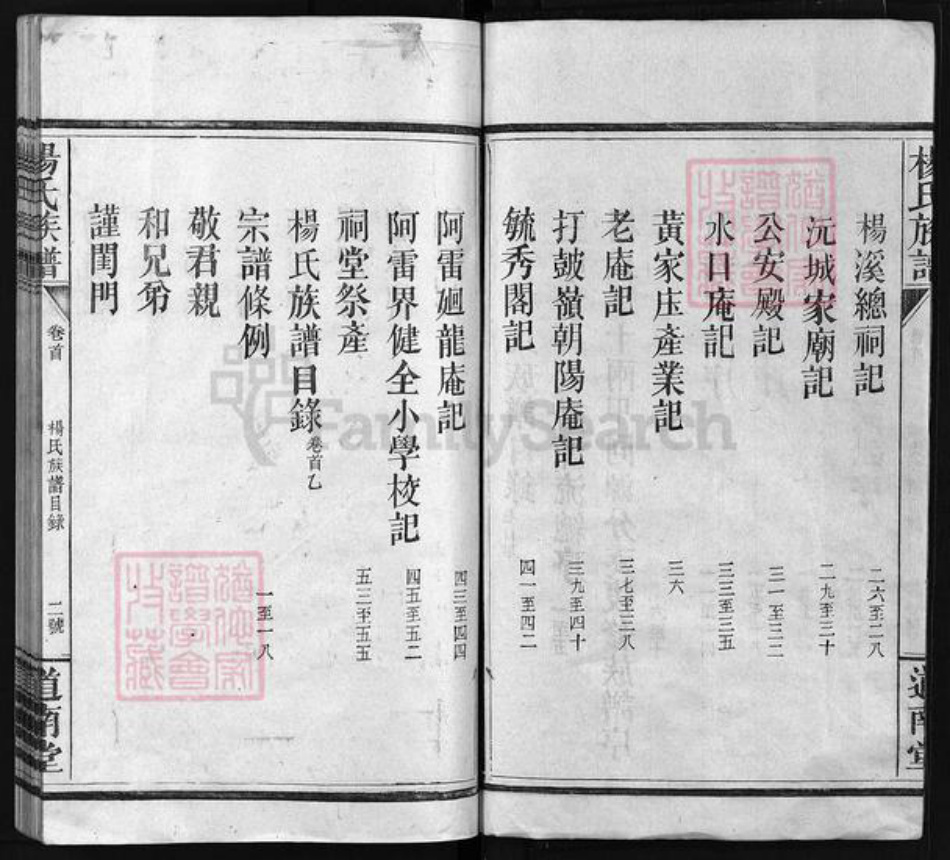 楊氏族譜
楊溪總祠記 二六至二八
沅城家廟記 二九至三十
公安殿記 三一至三二
水口庵記 三三至三五
黃家庄產業記 三六
老庵記 三七至三八
打鼓嶺朝陽庵記 三九至四十
毓秀閣記 四一至四二
阿雷廻龍庵記 四三至四四
阿雷界健全小學校記 四五至五二
祠堂祭產 五三至五五
楊氏族譜目錄 卷首乙
宗譜條例 一至一八
敬君親
和兄弟
謹閨門
楊氏族譜 卷首 楊氏族譜目錄 二號 道南堂
道南堂
FamilySearch